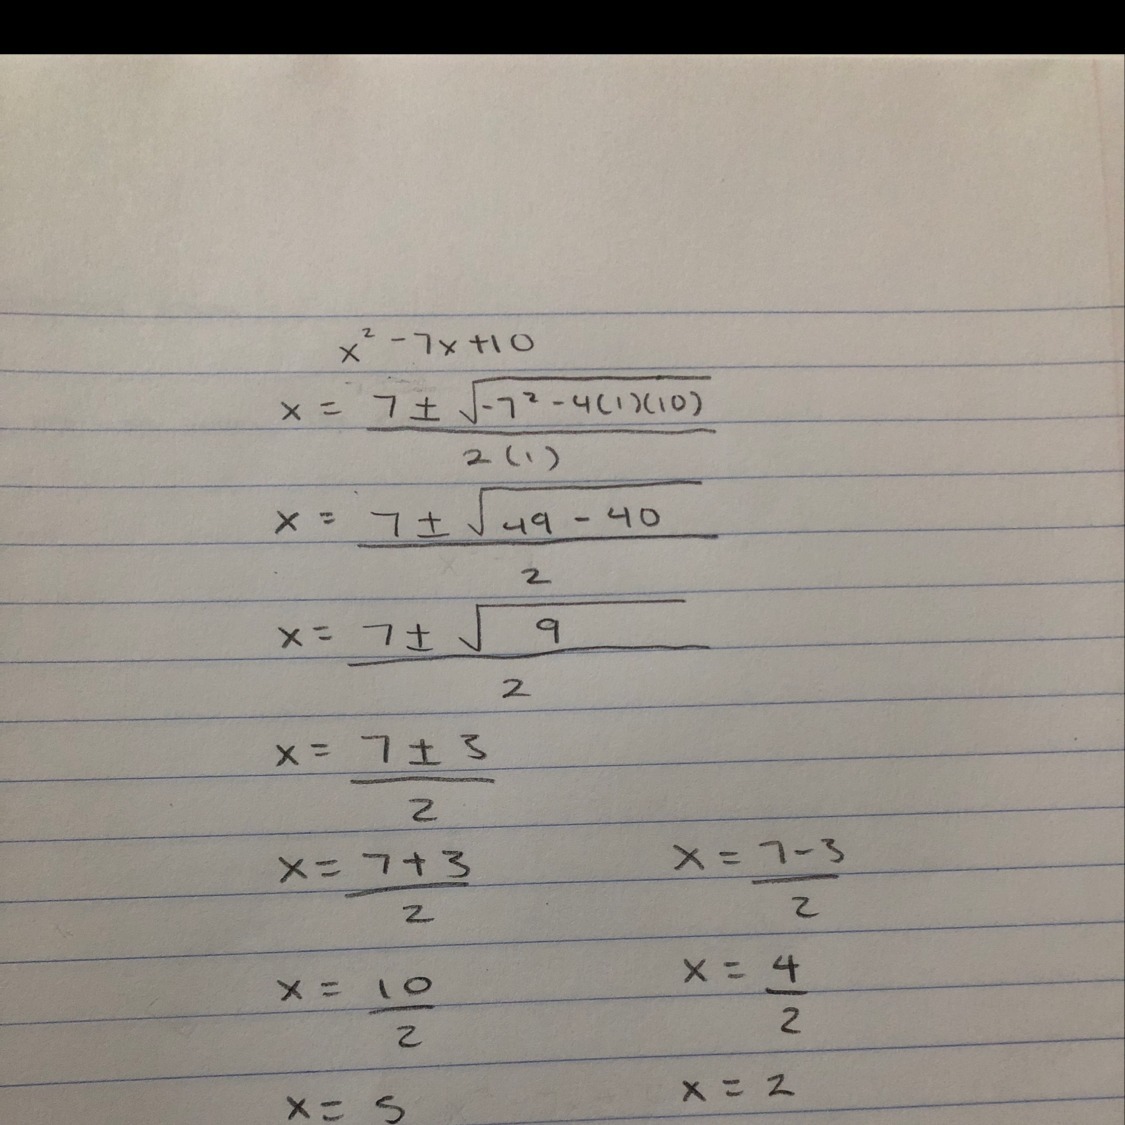 x² - 7x + 10
x = 7 ± √-7² - 4(1)(10)
2(1)
x = 7 ± √49 - 40
2
x = 7 ± √9
2
x = 7 ± 3
2
x = 7 + 3 x = 7 - 3
2 2
x = 10 x = 4
2 2
x = 5 x = 2